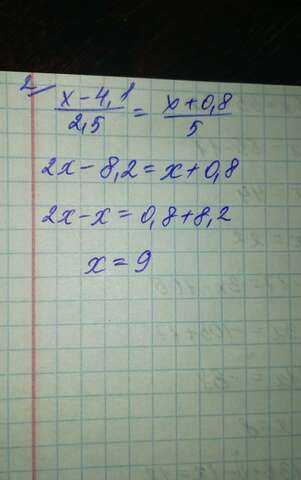 2/ (x-4,1)/2,5 = (x+0,8)/5
2x-8,2=x+0,8
2x-x=0,8+8,2
x=9